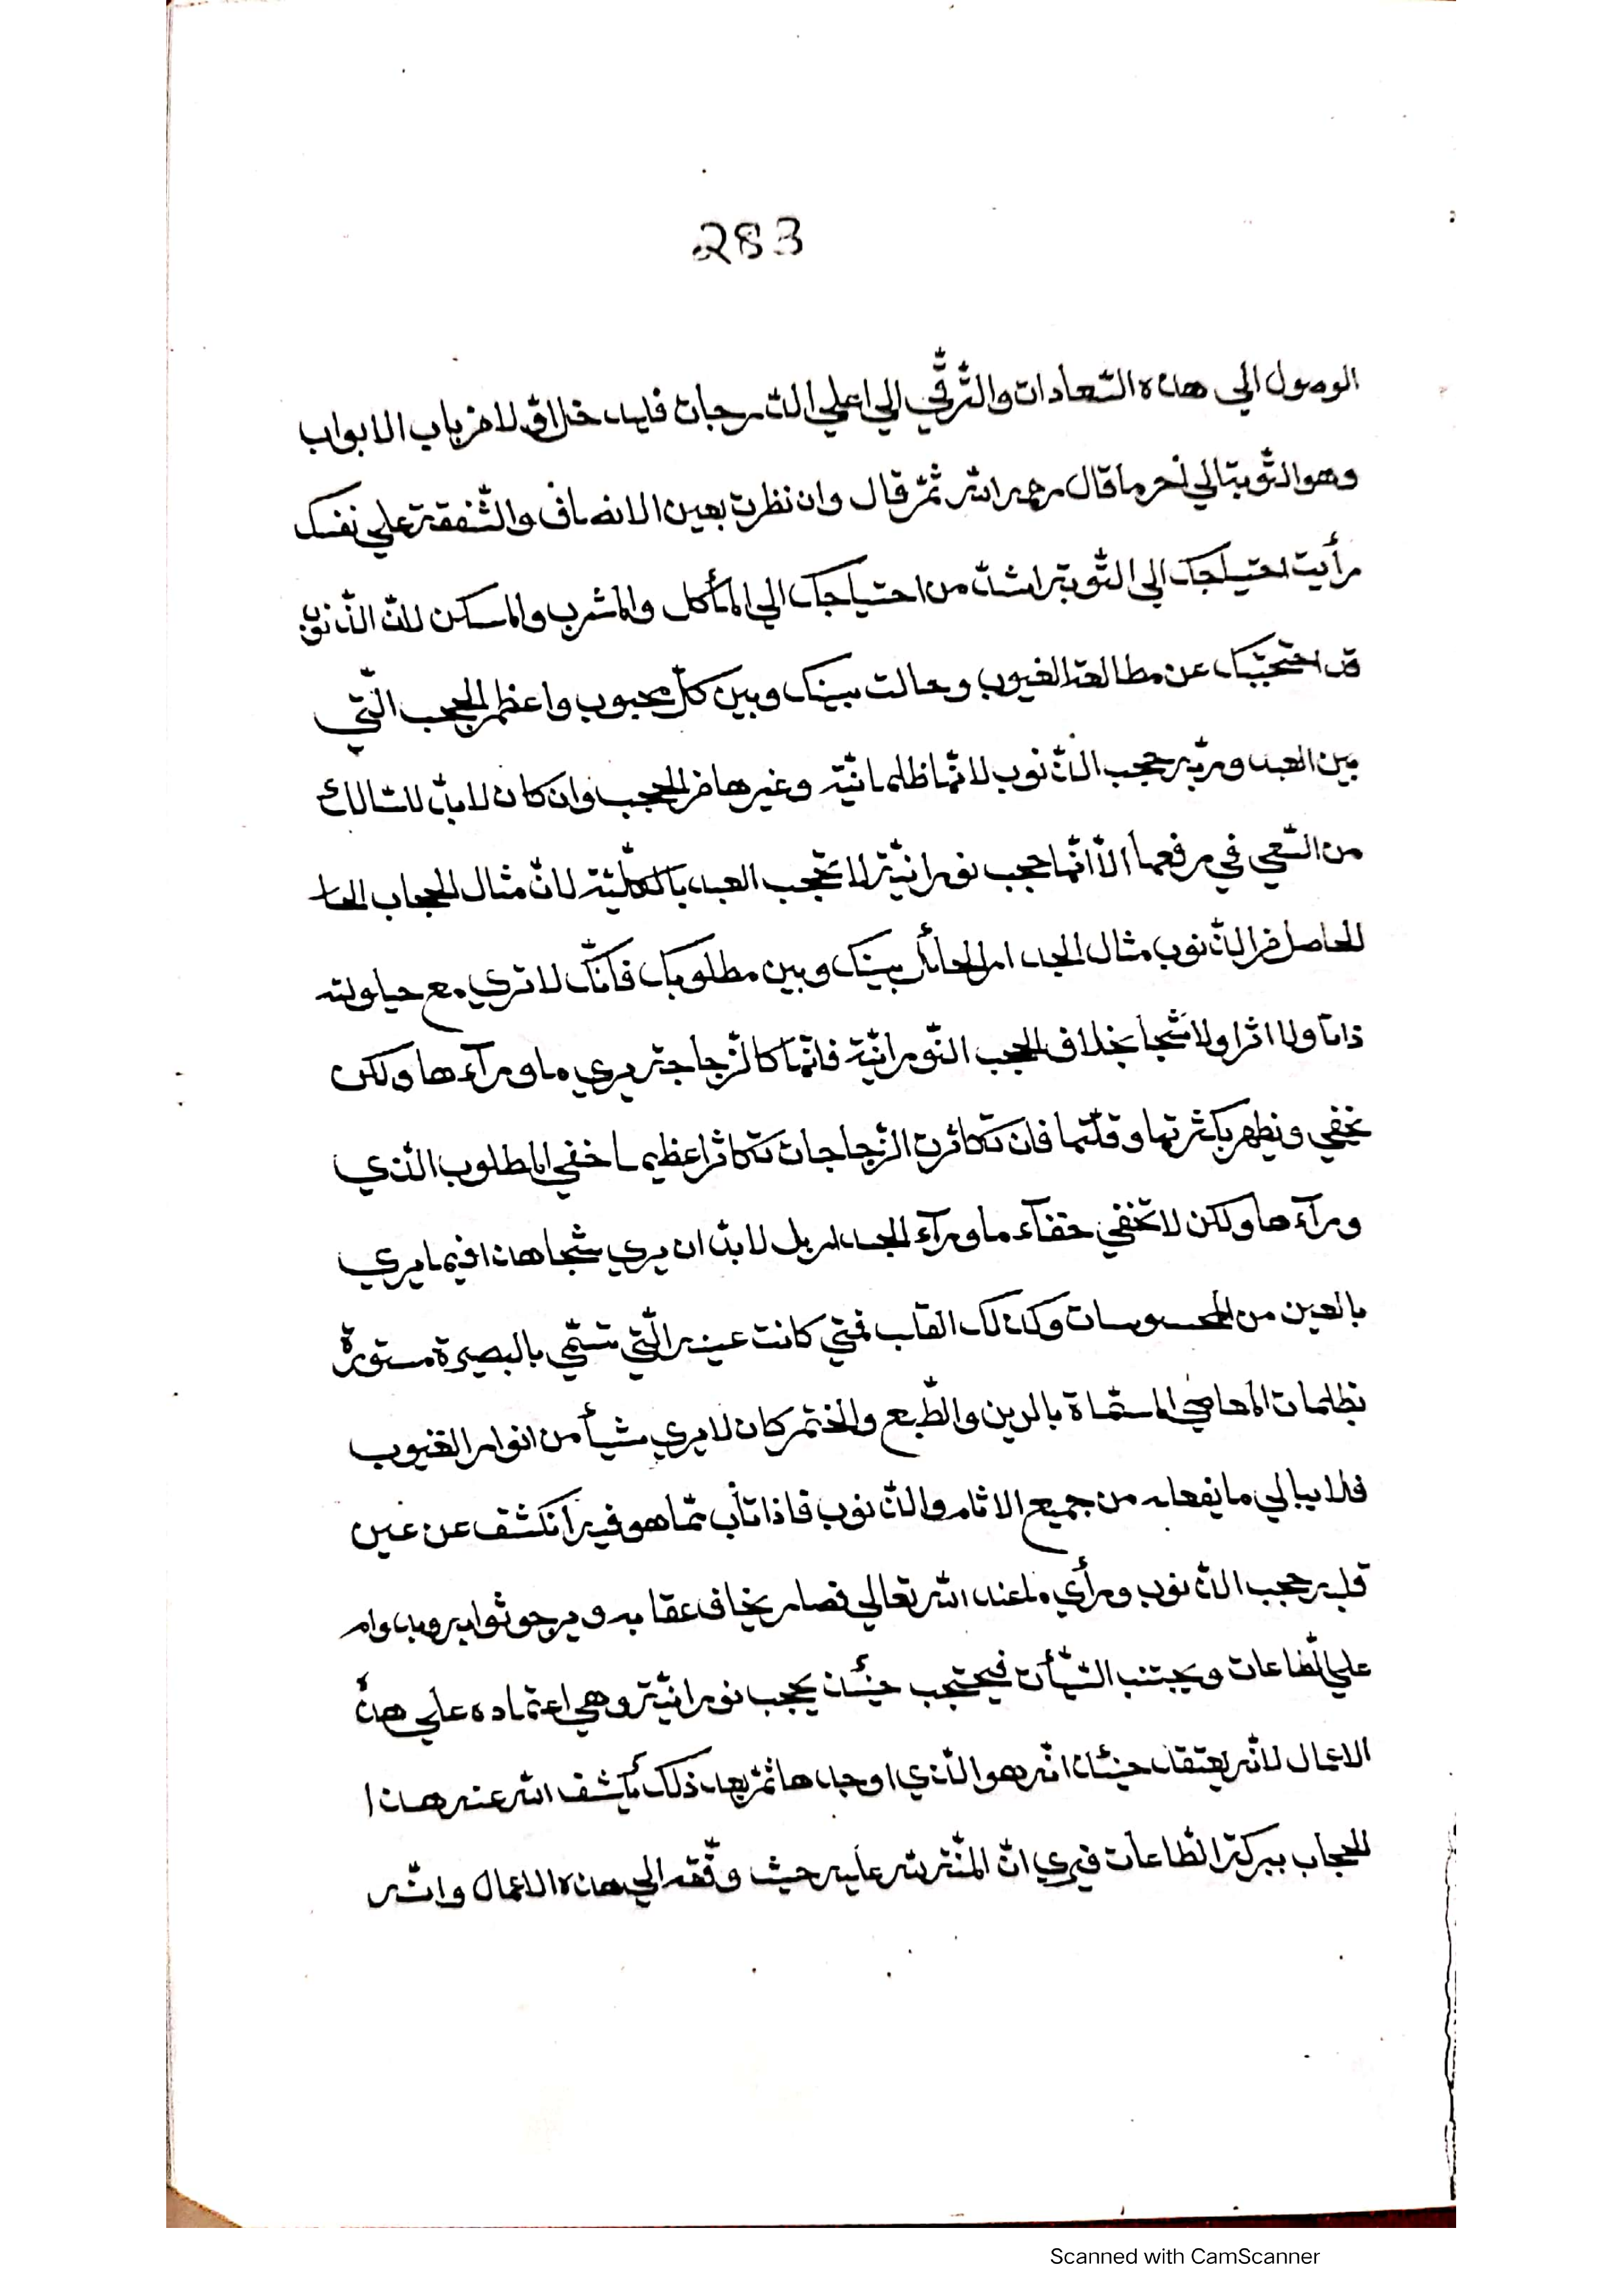 283
الوصول الي هذه السّعادات والتّرقّي الي اعلي الدّرجات فليدخل اوّلا من باب الابواب
وهو التّوبة الي اخر ما قال رحمه الله ثمّ قال وان نظرت بعين الانصاف والشّفقة علي نفسك
رأيت احتياجك الي التّوبة اشدّ من احتياجك الي المأكل والمشرب والمسكن لانّ الذّنوب
قد احتجبتك عن مطالعة الغيوب وحالت بينك وبين كلّ محبوب واعظم الحجب الّتي
بين العبد وربّه حجب الذّنوب لانّها ظلمانيّة وغيرها من الحجب وان كان لا بدّ للسّالك
من السّعي في رفعها الّا انّها حجب نورانيّة لا تحجب العبد بالكلّيّة لانّ مثال الحجاب الحا
الحاصل من الذّنوب مثال الجدار الحائل بينك وبين مطلوبك فانّك لا تري مع حيلولته
ذاتا ولا اثرا ولا شجا بخلاف الحجب النّورانيّة فانّها كالزّجاجة يري ما ورآءها ولكن
يخفي ويظهر بكثرتها وقلّتها فان تكاثرت الزّجاجات تكاثرا عظيما خفي المطلوب الّذي
ورآءها ولكن لا تخفي خفآء ما ورآء الجدار بل لا بدّ ان يري شجا هذا فيما يري
بالعين من المحسوسات وكذلك القلب فمتي كانت عينه الّتي تسمّي بالبصيرة مستورة
بظلمات المعاصي المسمّاة بالرين والطّبع والختم كان لا يري شيأ من انوار الغيوب
فلا يبالي ما يفعله من جميع الاثام والذّنوب فاذا تاب ممّا هو فيه انكشف عن عين
قلبه حجب الذّنوب ورأي ما عند الله تعالي فصار يخاف عقابه ويرجو ثوابه ويداوم
علي الطّاعات ويجتنب السّيّأت فيحتجب حينئذ بحجب نورانيّة وهي اعتماده علي هذه
الاعمال لانّه يعتقد حينئذ انّه هو الّذي اوجدها ثمّ بعد ذلك يكشف الله عنه هذا
الحجاب ببركة الطّاعات فيري انّ المنّة لله عليه حيث وفّقه الي هذه الاعمال وانّه